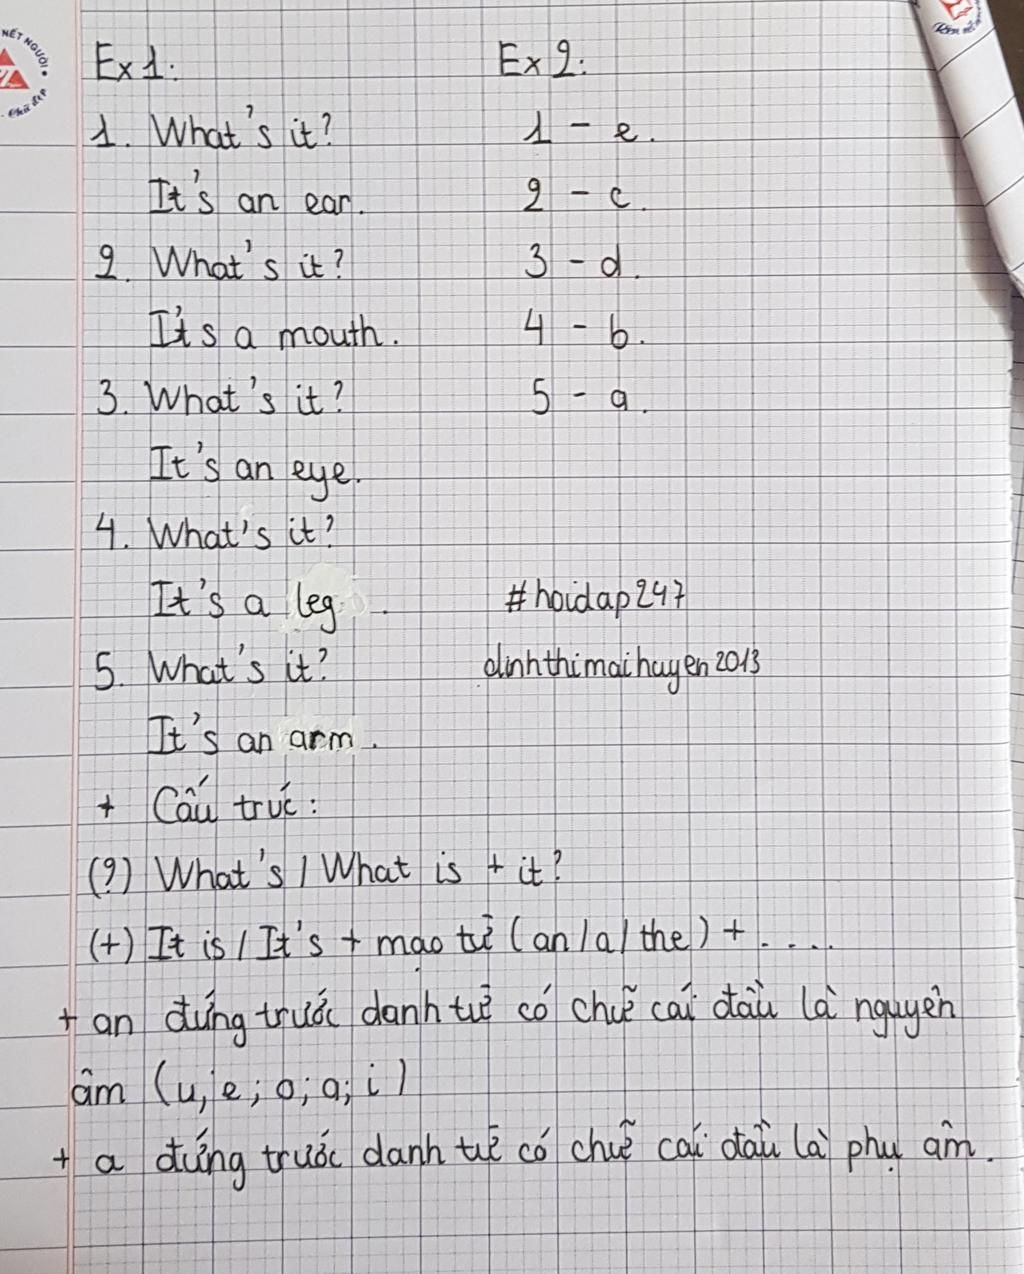 NẾT NGƯỜI
Chữ đẹp
Ex 1:
1. What's it?
It's an ear.
2. What's it?
It's a mouth.
3. What's it?
It's an eye.
4. What's it?
It's a leg.
5. What's it?
It's an arm.
Ex 2:
1 - e.
2 - c.
3 - d.
4 - b.
5 - a.
#hoidap247
dinhthimaihuyen2013
+ Cấu trúc:
(?) What's / What is + it?
(+) It is / It's + mạo từ (an/a/the) + ....
+ an đứng trước danh từ có chữ cái đầu là nguyên
âm (u, e; o; a; i)
+ a đứng trước danh từ có chữ cái đầu là phụ âm.